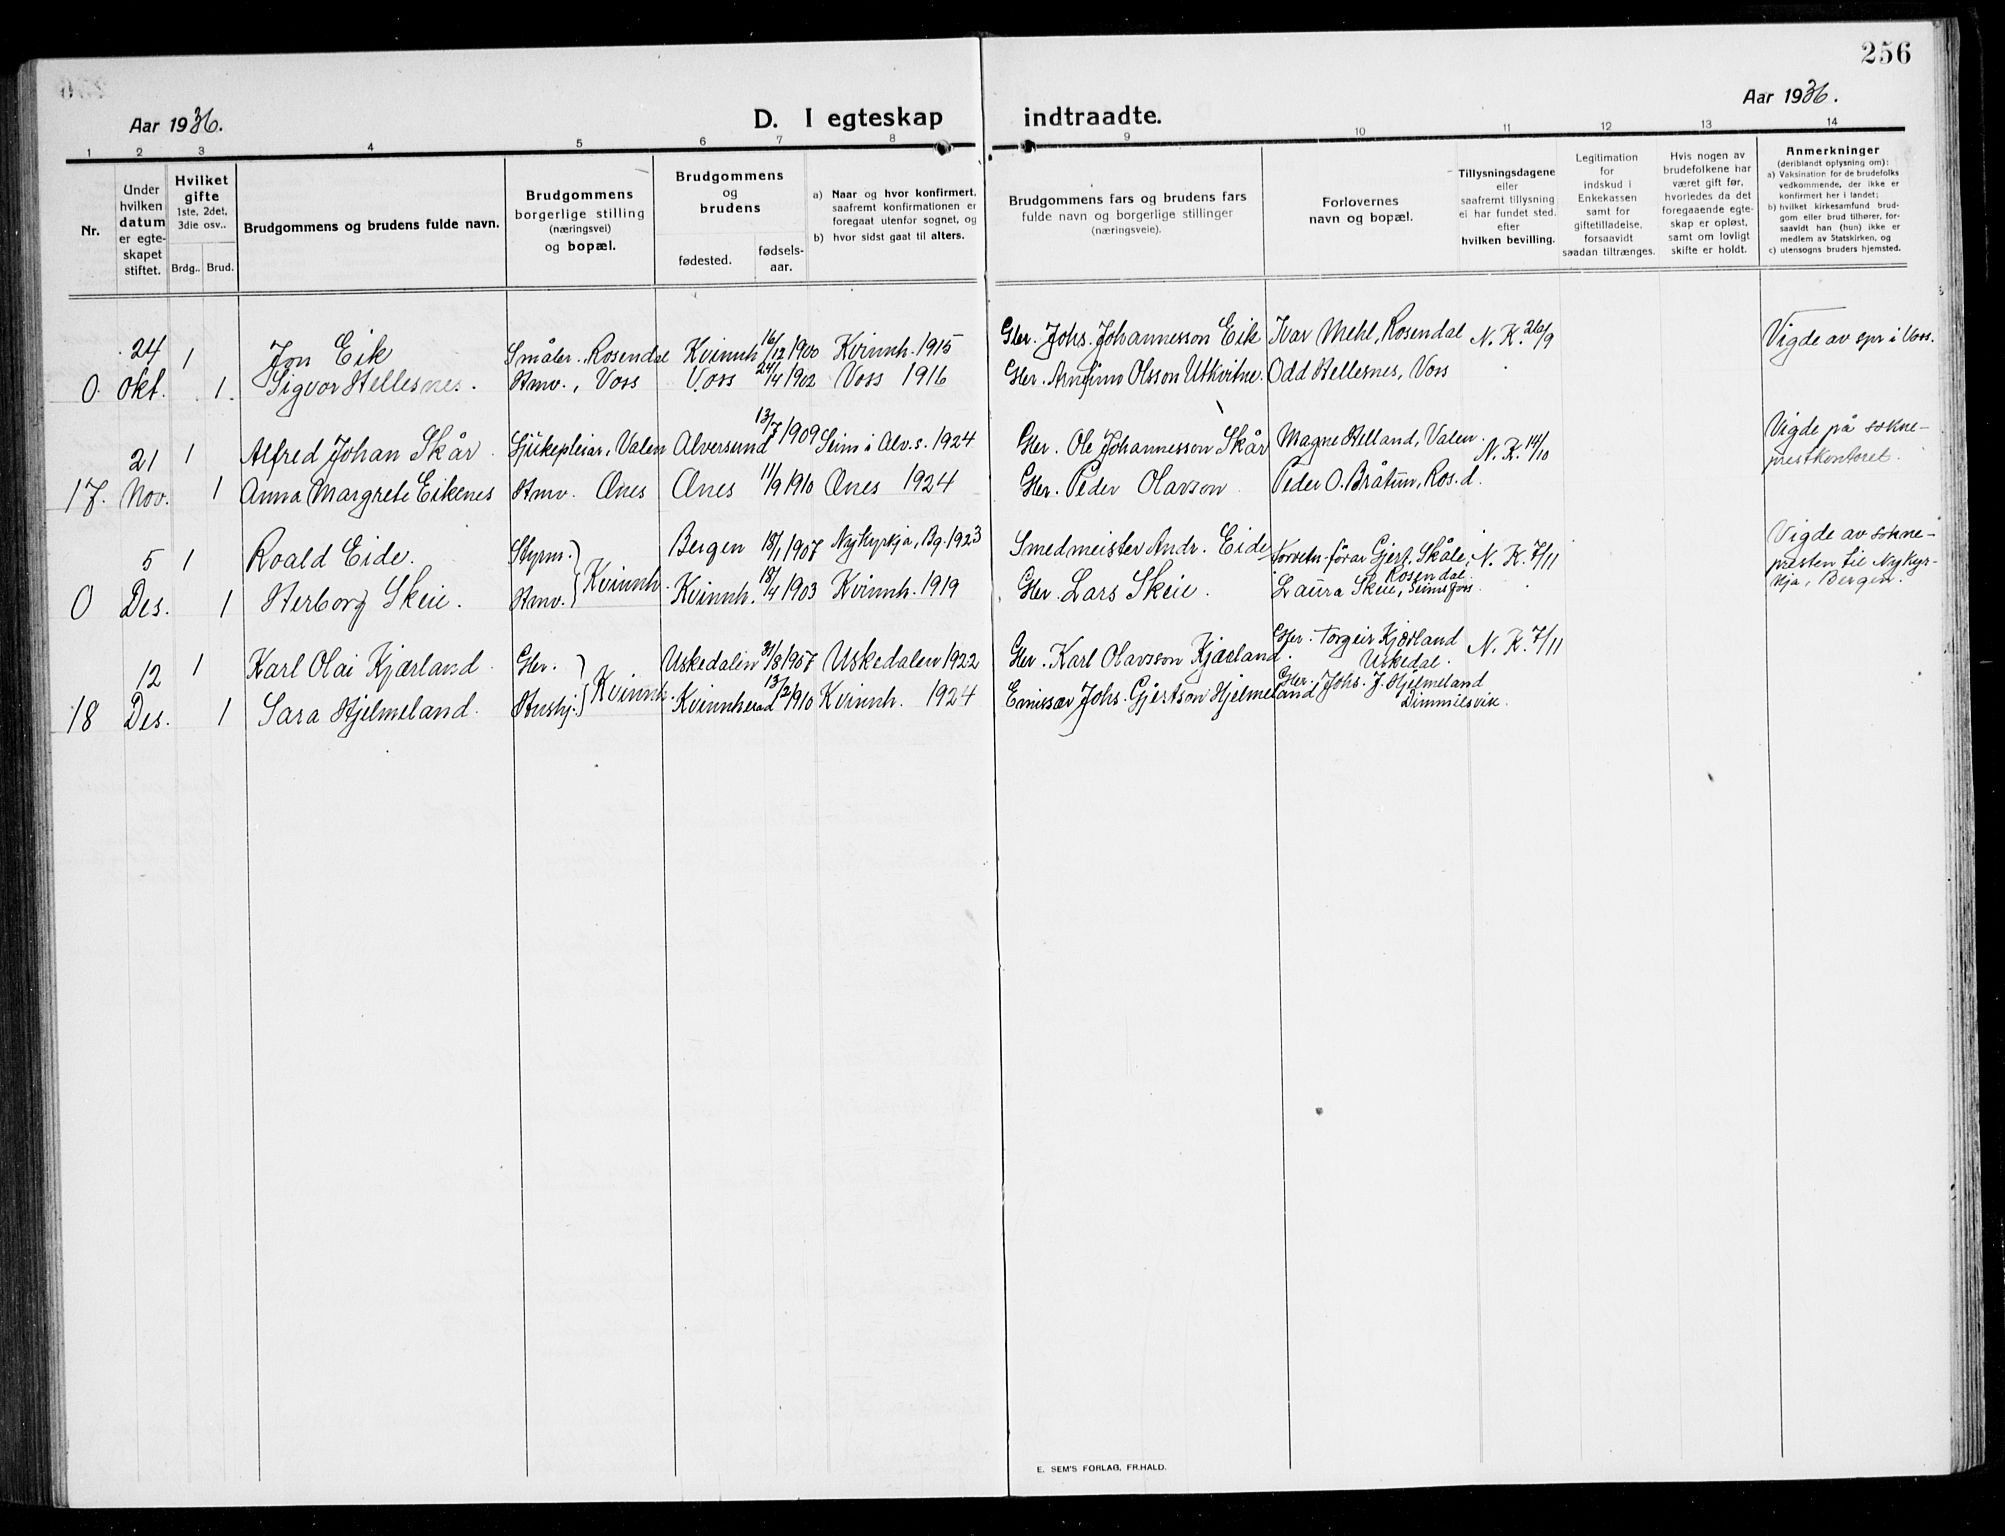 256
Aar 1936.
D. I egteskap indtraadte.
Aar 1936.
1 2 3 4 5 6 7 8 9 10 11 12 13 14
Nr.
Under hvilken datum er egteskapet stiftet.
Hvilket gifte 1ste, 2det, 3die osv..
Brdg.. Brud.
Brudgommens og brudens fulde navn.
Brudgommens borgerlige stilling (næringsvei) og bopæl.
Brudgommens og brudens
fødested. fødsels-aar.
a) Naar og hvor konfirmert, saafremt konfirmationen er foregaat utenfor sognet, og
b) hvor sidst gaat til alters.
Brudgommens fars og brudens fars fulde navn og borgerlige stillinger (næringsveie).
Forlovernes navn og bopæl.
Tillysningsdagene eller saafremt tillysning ei har fundet sted, efter hvilken bevilling.
Legitimation for indskud i Enkekassen samt for giftetilladelse, forsaavidt saadan tiltrænges.
Hvis nogen av brudefolkene har været gift før, hvorledes da det foregaaende egteskap er opløst, samt om lovligt skifte er holdt.
Anmerkninger (deriblandt oplysning om):
a) Vaksination for de brudefolks vedkommende, der ikke er konfirmert her i landet;
b) hvilket kirkesamfund brudgom eller brud tilhører, forsaavidt han (hun) ikke er medlem av Statskirken, og
c) utensogns bruders hjemsted.
24 1 Jon Eik Småler. Rosendal Kvinnh 16/12 1900 Kvinnh. 1915 Gbr. Johs. Johannesson Eik Ivar Mehl, Rosendal N. K. 26/9 Vigde av spr i Voss.
0 Okt. 1. Sigvor Hellesnes. Hmv., Voss Voss 24/4 1902 Voss 1916 Gbr. Arnfinn Olsson Utkvitne. Odd Hellesnes, Voss
21 1 Alfred Johan Skår. Sjukepleiar, Valen Alversund 13/7 1909 Seim i Alv.s. 1924 Gbr. Ole Johannesson Skår Magne Helland, Valen. N. K. 14/10 Vigde på sokne-
17. Nov. 1 Anna Margrete Eikenes Hmv. Ænes Ænes 11/9 1910 Ænes 1924 Gbr. Peder Olavson. Peder O. Bråtun, Ros.d. prestkontoret.
5 1 Roald Eide. Styrm. Kvinnh. Bergen 18/1 1907 Nykyrkja, Bg. 1923 Smedmeister Andr. Eide Forretn.förar Gjert Skåle, Rosendal. N. K. 7/11 Vigde av sokne-
0 Des. 1 Herborg Skeie. Hmv. Kvinnh. 18/4 1903 Kvinnh. 1919 Gbr. Lars Skeie. Laura Skeie, presten til Nykyr-
kja, Bergen.
12 1 Karl Olai Kjærland. Gbr. Kvinnh. Uskedalen 31/8 1907 Uskedalen 1922 Gbr. Karl Olavsson Kjærland. Gbr. Torgeir Kjærland Uskedal. N. K. 7/11
18 Des. 1 Sara Hjelmeland. Hushj. Kvinnherad 13/2 1910 Kvinnh. 1924 Emissær Johs. Gjertson Hjelmeland Gbr. Johs. J. Hjelmeland Dimmelsvik.
E. SEM'S FORLAG, FR.HALD.